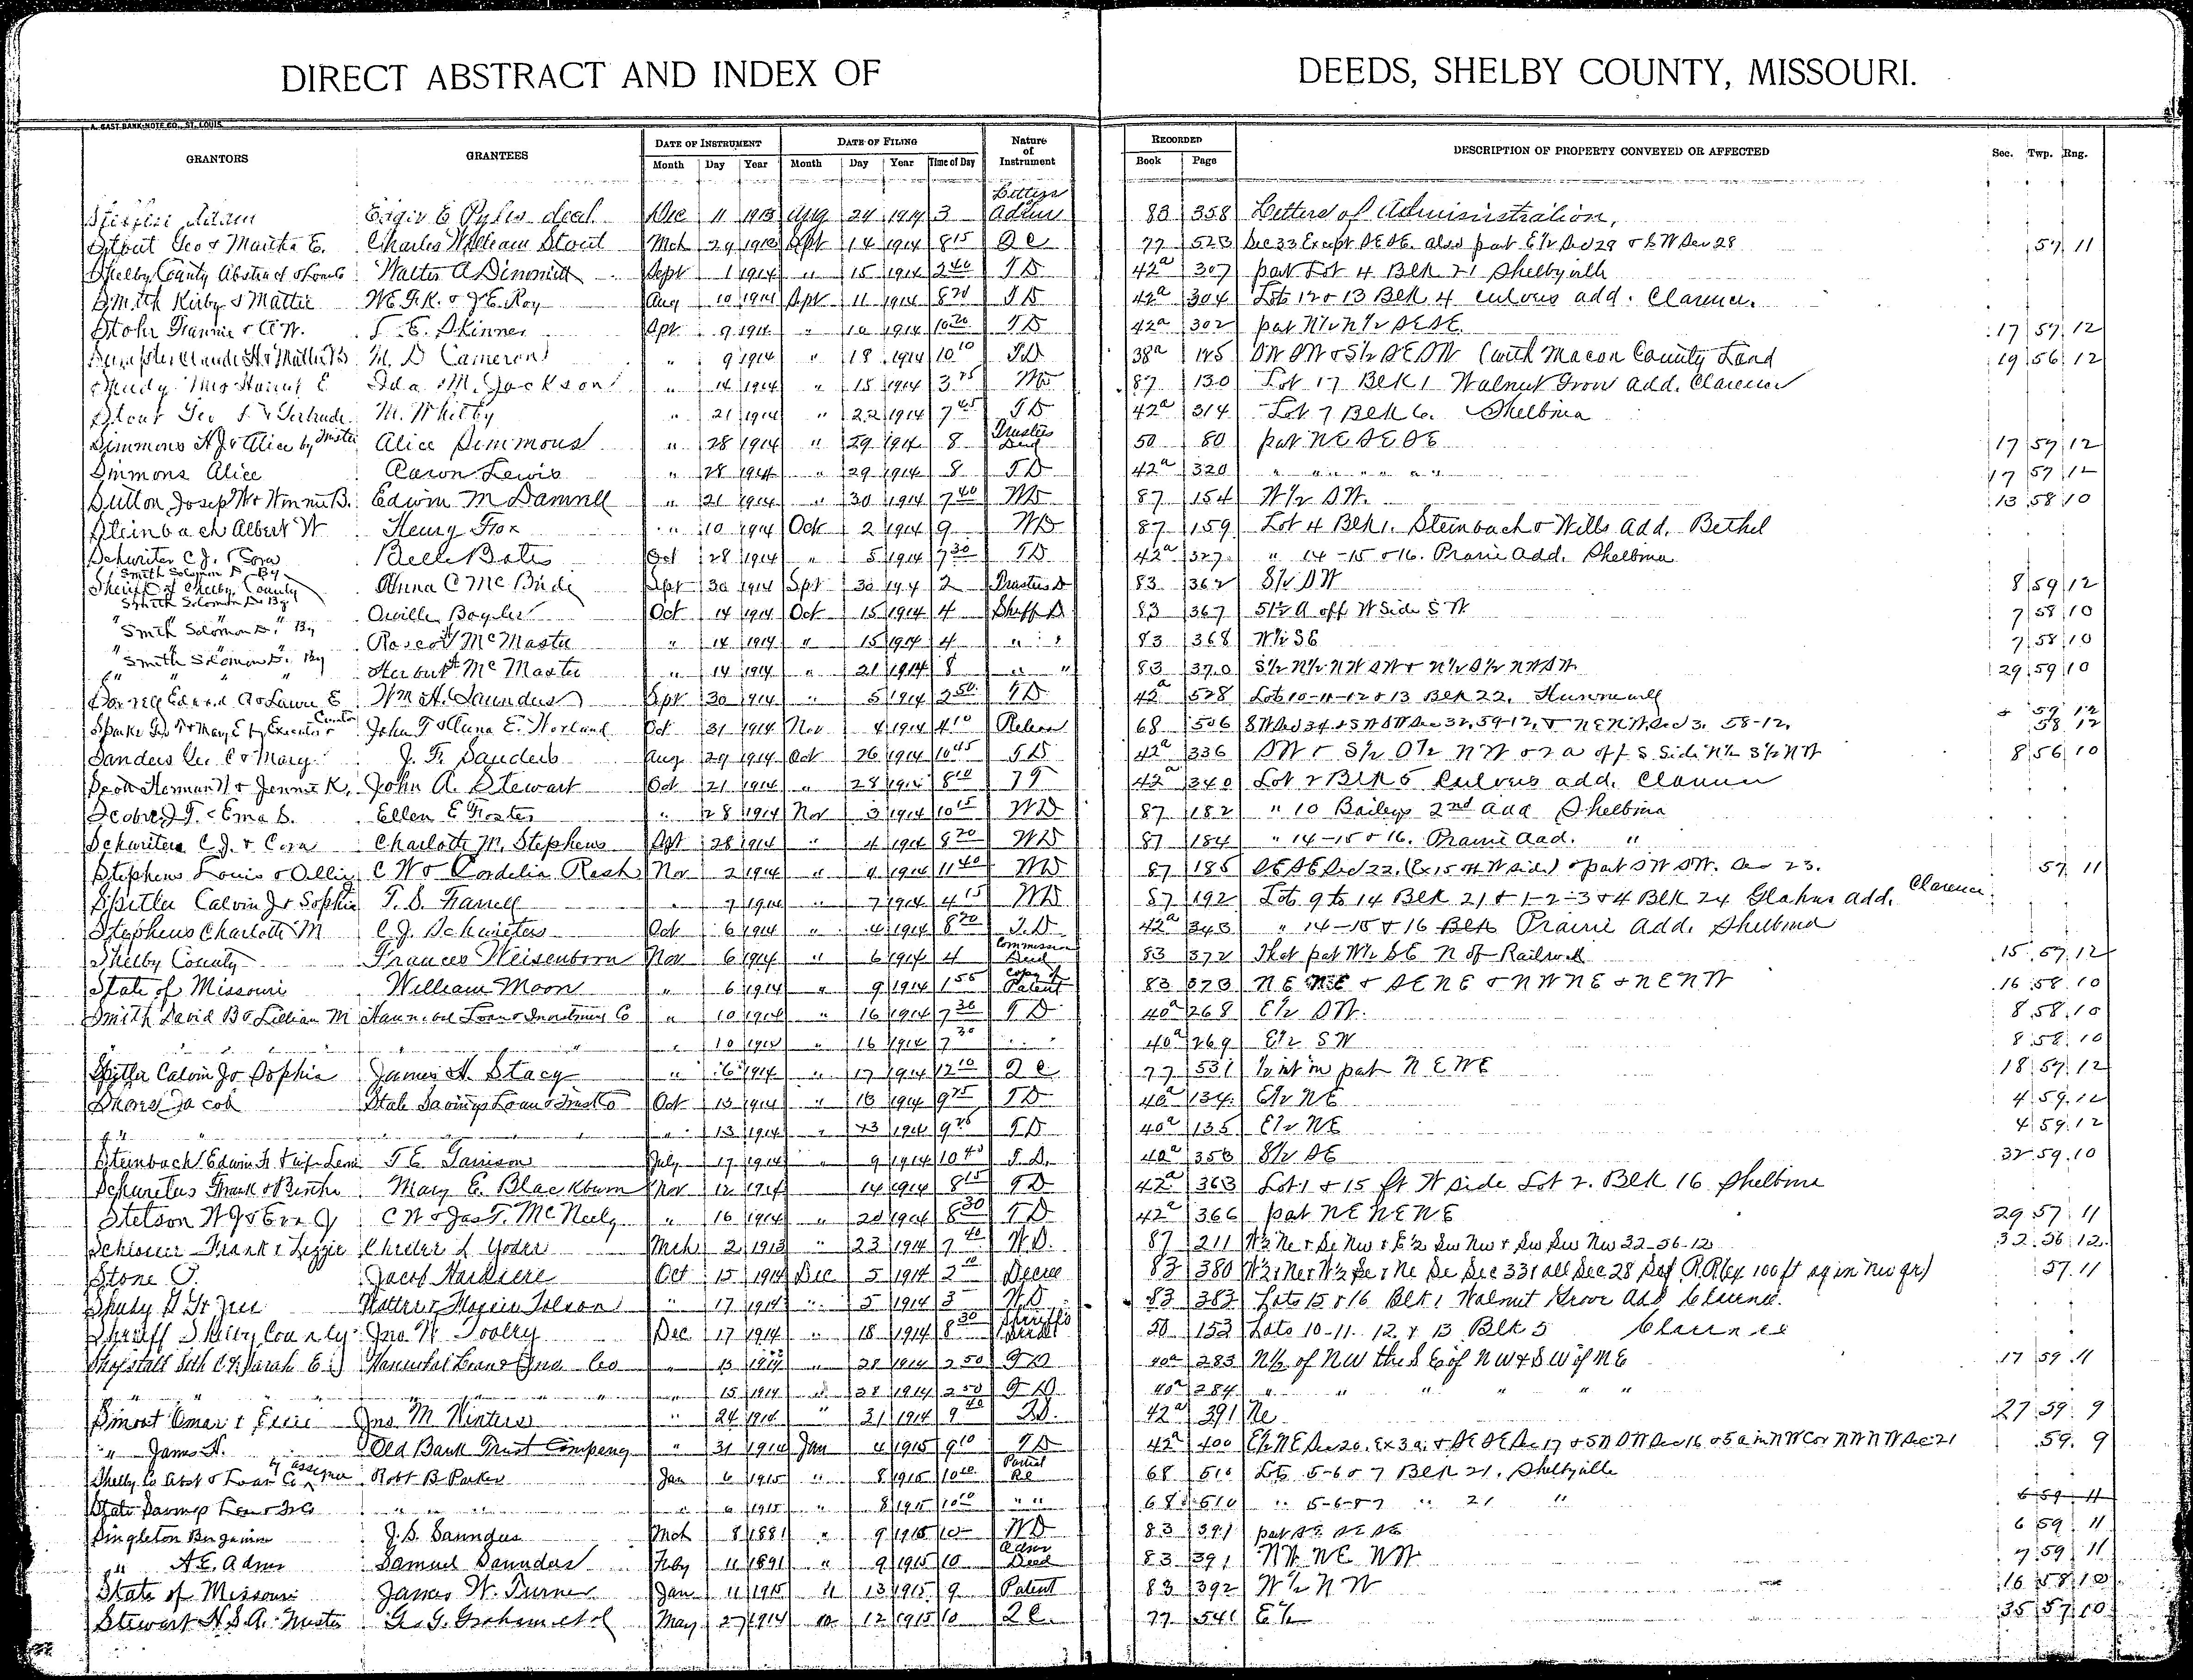 DIRECT ABSTRACT AND INDEX OF DEEDS, SHELBY COUNTY, MISSOURI.
A. GAST BANK NOTE CO., ST. LOUIS
GRANTORS GRANTEES DATE OF INSTRUMENT DATE OF FILING Nature of Instrument RECORDED DESCRIPTION OF PROPERTY CONVEYED OR AFFECTED Sec. Twp. Rng.
Month Day Year Month Day Year Time of Day Book Page
Adam Pyles decd Dec 11 1913 Aug 24 1914 3 Letters Admr 83 358 Letters of Administration,
Stout Geo & Martha E. Charles William Stout Mch 24 1913 Sept 14 1914 8 15 Q C 77 523 Sec 33 Except SE SE. also part E 1/2 Sec 29 & SW Sec 28 57 11
Shelby County Abstract & Loan Co Walter A Dimmitt Sept 1 1914 " 15 1914 2 40 T D 42a 307 part Lot 4 Blk 21 Shelbyville
Smith Kirby & Mattie W. E. F. K. & J. E. Roy Aug 10 1914 Sept 11 1914 T D 42a 304 Lots 12 & 13 Blk 4 Culvers add. Clarence.
Stohr Fannie & C. W. T. E. Skinner Sept 9 1914 " 10 1914 10 20 T D 42a 302 part N 1/2 N 1/2 SE SE. 17 57 12
M. D Cameron " 9 1914 " 18 1914 10 10 T D 38a 125 SW SW & S 1/2 SE SW (with Macon County Land 19 56 12
Shudy Mrs E Ida M. Jackson " 14 1914 " 15 1914 3 WD 87 130 Lot 17 Blk 1 Walnut Grove add. Clarence
Geo & Gertrude M. Whitby " 21 1914 " 22 1914 7 45 T D 42a 314 Lot 7 Blk 6. Shelbina
Simmons A J & Alice by Trustee Alice Simmons " 28 1914 " 29 1914 8 Trustees Deed 50 80 part NE SE SE 17 57 12
Simmons Alice Aaron Lewis " 28 1914 " 29 1914 8 T D 42a 320 " " " " " " 17 57 12
Sutton Joseph W & Winnie B. Edwin M Damrell " 21 1914 " 30 1914 7 40 WD 87 154 W 1/2 SW. 13 58 10
Steinbach Albert W Henry Fox " 10 1914 Oct 2 1914 9 WD 87 159 Lot 4 Blk 1. Steinbach & Wills add. Bethel
Schwieter C. J. & Cora Belle Bates Oct 28 1914 " 5 1914 7 30 T D 42a 327 " 14-15 & 16. Prairie add. Shelbina
Smith Solomon D By
Sheriff of Shelby County Anna C McBride Sept 30 1914 Sept 30 1914 2 Trustees D 83 362 S 1/2 SW 8 59 12
Smith Solomon D. By
" " " Orville Bayles Oct 14 1914 Oct 15 1914 4 Sheff D 83 367 51 1/2 A off W Side SW 7 58 10
Smith Solomon D. By
" " " Roscoe McMaster " 14 1914 " 15 1914 4 " " 83 368 W 1/2 SE 7 58 10
Smith Solomon D. By
" " " Herbert McMaster " 14 1914 " 21 1914 8 " " 83 370 S 1/2 N 1/2 NW SW & N 1/2 S 1/2 NW SW 29 59 10
Wm H. Saunders Sept 30 1914 " 5 1914 2 50 T D 42a 328 Lots 10-11-12 & 13 Blk 22. Hunnewell
John T & Anna E. Oct 31 1914 Nov 4 1914 4 10 Release 68 506 SW Sec 34 & SW SW Sec 32, 59-12, & NE NW Sec 3. 58-12. & 59 12 58 12
Sanders Geo C & Mary J. F. Sanders Aug 29 1914 Oct 26 1914 10 45 T D 42a 336 SW & S 1/2 S 1/2 NW & 2 a off S Side N 1/2 S 1/2 NW 8 56 10
Scott Herman H & Jennie K. John A. Stewart Oct 21 1914 " 28 1914 8 10 T D 42a 340 Lot 2 Blk 5 Culvers add. Clarence
J. T. & Ema S. Ellen E Foster " 28 1914 Nov 3 1914 10 15 WD 87 182 " 10 Baileys 2nd add Shelbina
Schwieters C. J. & Cora Charlotte M. Stephens Sept 28 1914 " 4 1914 8 20 WD 87 184 " 14-15 & 16. Prairie add. "
Stephens Louis & Ollie C W & Cordelia Rash Nov 2 1914 " 4 1914 11 40 WD 87 185 SE SE Sec 22, (Ex 15 ft W side) & part SW SW. Sec 23. 57 11
Spitler Calvin J & Sophia T. S. Farrell " 7 1914 " 7 1914 4 15 WD 87 192 Lots 9 to 14 Blk 21 & 1-2-3 & 4 Blk 24 Glahns add. Clarence
Stephens Charlotte M C. J. Schwieters Oct 6 1914 " 4 1914 8 20 T. D 42a 343 " 14-15 & 16 Blk Prairie Add. Shelbina
Shelby County Frances Weisenborn Nov 6 1914 " 6 1914 4 Commissr Deed 83 372 That part W 1/2 SE N of Railroad 15 57 12
State of Missouri William Moon " 6 1914 " 9 1914 1 55 Copy of Patent 83 373 NE NE & SE NE & NW NE & NE NW 16 58 10
Smith David B & Lillian M Hannibal Loan & Investment Co " 10 1914 " 16 1914 7 30 T D 40a 268 E 1/2 SW. 8 58 10
" " " " " 10 1914 " 16 1914 7 30 " " 40a 269 E 1/2 SW 8 58 10
Spitler Calvin J & Sophia James H. Stacy " 6 1914 " 17 1914 12 10 Q C 77 531 1/2 int in part NE NE 18 57 12
Jacob State Savings Loan & Trust Co Oct 13 1914 " 13 1914 T D 40a 134 E 1/2 NE 4 59 12
" " " " " 13 1914 " 1914 T D 40a 135 E 1/2 NE 4 59 12
Steinbach Edwin H & wife Lena T E Garrison July 17 1914 " 9 1914 10 40 T. D. 42a 358 S 1/2 SE 32 59 10
Frank & Mary E. Blackburn Nov 12 1914 14 1914 8 15 T D 42a 363 Lot 1 & 15 ft W side Lot 2. Blk 16 Shelbina
Stetson W J & Eva J C W & Jas T. McNeely " 16 1914 " 20 1914 8 30 T D 42a 366 part NE NE NE 29 57 11
Frank & Lizzie L Yoder Mch 2 1913 " 23 1914 7 40 W. D. 87 211 W 1/2 Ne & Se Nw & E 1/2 Sw Nw & Sw Sw Nw 32-56-12 32 56 12
Stone Jacob Oct 15 1914 Dec 5 1914 2 10 Decree 83 380 57 11
" 17 1914 " 5 1914 3 W. D 83 383 Lots 15 & 16 Blk 1 Walnut Grove Add Clarence.
Sheriff Shelby County Jno W Tooley Dec 17 1914 " 18 1914 8 30 Sheriff's Deed 50 153 Lots 10-11. 12. & 13 Blk 5 Clarence
Seth C & Sarah E Hannibal Loan & Inv Co " 15 1914 " 28 1914 2 50 T D 40a 283 N 1/2 of NW the SE of NW & SW of NE 17 59 11
" " " " " 15 1914 " 28 1914 2 50 T D 40a 284 " " " " " "
Smoot Omar & Jno M Winters " 24 1914 " 31 1914 9 40 T D. 42a 391 Ne 27 59 9
" James H. Old Bank Trust Company " 31 1914 Jan 4 1915 9 10 T D 42a 400 E 1/2 NE Sec 20. Ex 3 a. & SE SE Sec 17 & SW SW Sec 16 & 5 a in NW Cor NW NW Sec 21 59 9
Shelby Co Abst & Loan Co by assignee Robt B Parker Jan 6 1915 " 8 1915 10 20 Partial Re 68 510 Lots 5-6 & 7 Blk 21. Shelbyville
State Savings Loan & Tr Co " " " " 6 1915 " 8 1915 10 20 " " 68 510 " 5-6-&7 " 21 " 6 59 11
Singleton Benjamin J. S. Mch 8 1881 " 9 1915 10 WD 83 391 part SE SE SE 6 59 11
" A E. Admr Samuel Saunders Feby 11 1891 " 9 1915 10 Admr Deed 83 391 NW NE NW 7 59 11
State of Missouri James W. Turner Jan 11 1915 " 13 1915 9 Patent 83 392 W 1/2 NW 16 58 10
Stewart H. S. A. Trustee G. G. Graham et al May 27 1914 " 12 1915 10 Q C. 77 541 E 1/2 35 57 10